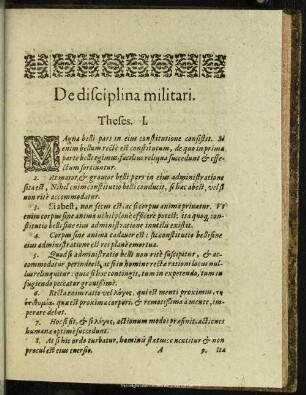 De disciplina militari.
Theses. I.
MAgna belli pars in eius constitutione consistit. Si
enim bellum rectè est constitutum, de quo in prima
parte belli egimus: facilius reliqua succedunt & effe-
ctum sortiuntur.
2. At maior, & gravior belli pars in eius administratione
sita est. Nihil enim constitutio belli conducit, si hac absit, vel si
non ritè accommodatur.
3. Si abest, non secus est: ac si corpus anima privatur. Vt
enim corpus sine anima nihil planè efficere potest: ita quoq; con-
stitutio belli sine eius administratione inutilis existit.
4. Corpus sine anima cadaver est: sic constitutio belli sine
eius administratione est res planè emortua.
5. Quod si administratio belli non ritè suscipitur, & ac-
commodatur perinde est, ac si in homine rectæ rationi locus nul-
lus relinquitur: qua si hoc contingit, tum in expetendo, tum in
fugiendo peccatur gravissimè.
6. Recta enim ratio vel λόγος, qui est menti proximus,
quæ est proxima corpori, & remotissima à mente, im-
perare debet.
7. Hoc si fit, & si λόγος, actionum modos præfinit: actiones
humanæ optimè succedunt.
8. At si hic ordo turbatur, hominis status concutitur & non
procul est eius eversio.
A 9. Ita